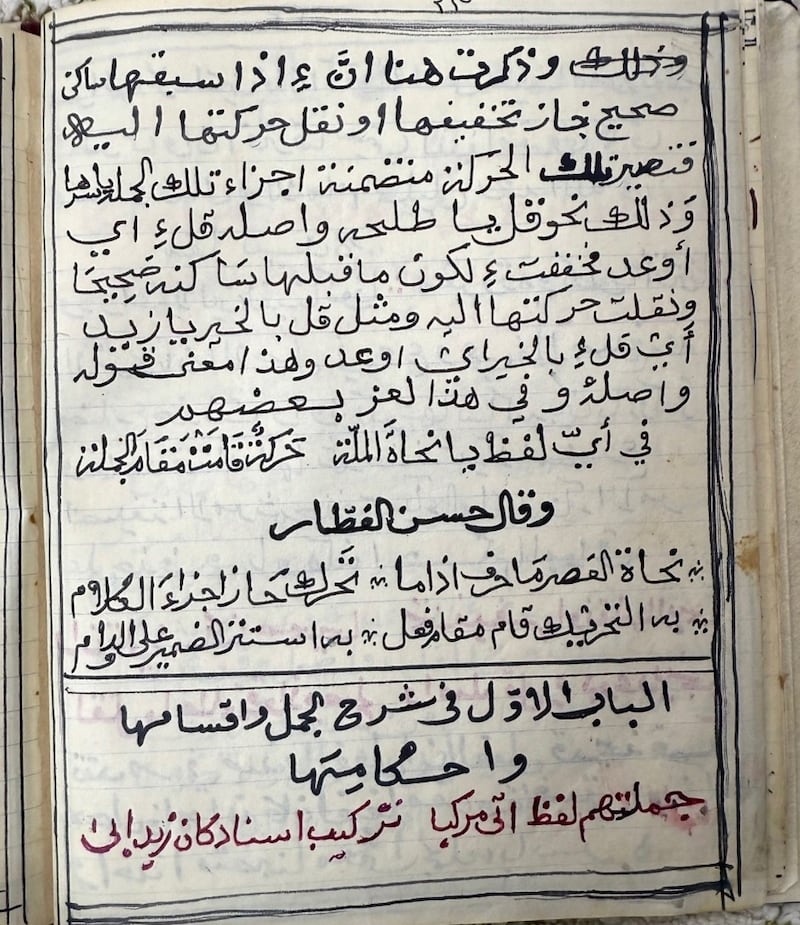 وذلك وذكرت هنا انَّ ءِ اذا سبقها ساكن
صحيح جاز تخفيفها او نقل حركتها اليه
فتصير تلك الحركة متضمنة اجزاء تلك الجملة باسرها
وَذلك نحو قل يا طلحه واصله قل ءِ اي
أوعد فخففت ءِ لكون ما قبلها سَاكنه صَحِيحًا
ونقلت حركتها اليه ومثل قل بالخير يا زيد
أي قل ءِ بالخير اي اوعد وهذا معنى قوله
واصلهُ و في هذا لغز بعضهم
في أيّ لفظ يا نحاةَ الملّة حَركةٌ قَامَتْ مَقَامَ الجُملة
وقال حسن العَطّار
نحاة العصر مَا حرف اذا ما تَحَرك حَاز اجزاءَ الكلام
به التحريك قام مقام فعل به استتر الضمير على الدوام
الباب الاوّل فى شرح الجمل واقسامها
واحكامِهَا
جملتهم لفظ اتى مركبا تركيب اسناد كان زيد ابى